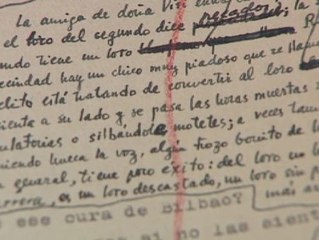 La amiga de doña Visi
el loro del segundo dice pecados; la
tiene un loro
vecindad hay un chico muy piadoso que se llama
está tratando de convertir al loro
sienta a su lado y se pasa las horas muertas
jaculatorias o silbándole motetes; a veces
hueca la voz, algún trozo bonito de
general, tiene poco éxito: del loro un
es un loro descastado, un loro sin
ese cura de bilbao? mai